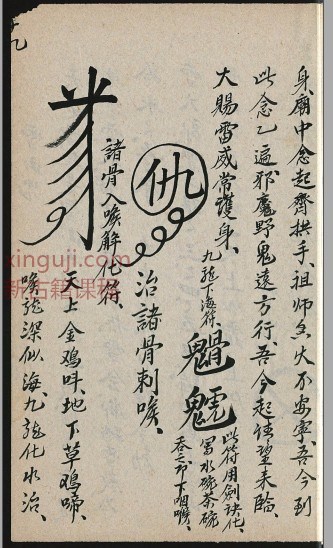 身庙中念起齊拱手、祖师
火不安寧、吾今到
此念乙遍、邪魔野鬼遠方行、吾今起请望来臨、
大賜雷威常護身、
九龍下海符、
以符用劍訣化、
冒水碗茶碗
吞之即下咽喉、
治諸骨刺喉、
仇
諸骨入喉解化符、
天上金鸡叫、地下草鸡啼、
喉龍深似海、九龍化水治、
xinguji.com
新古籍课程